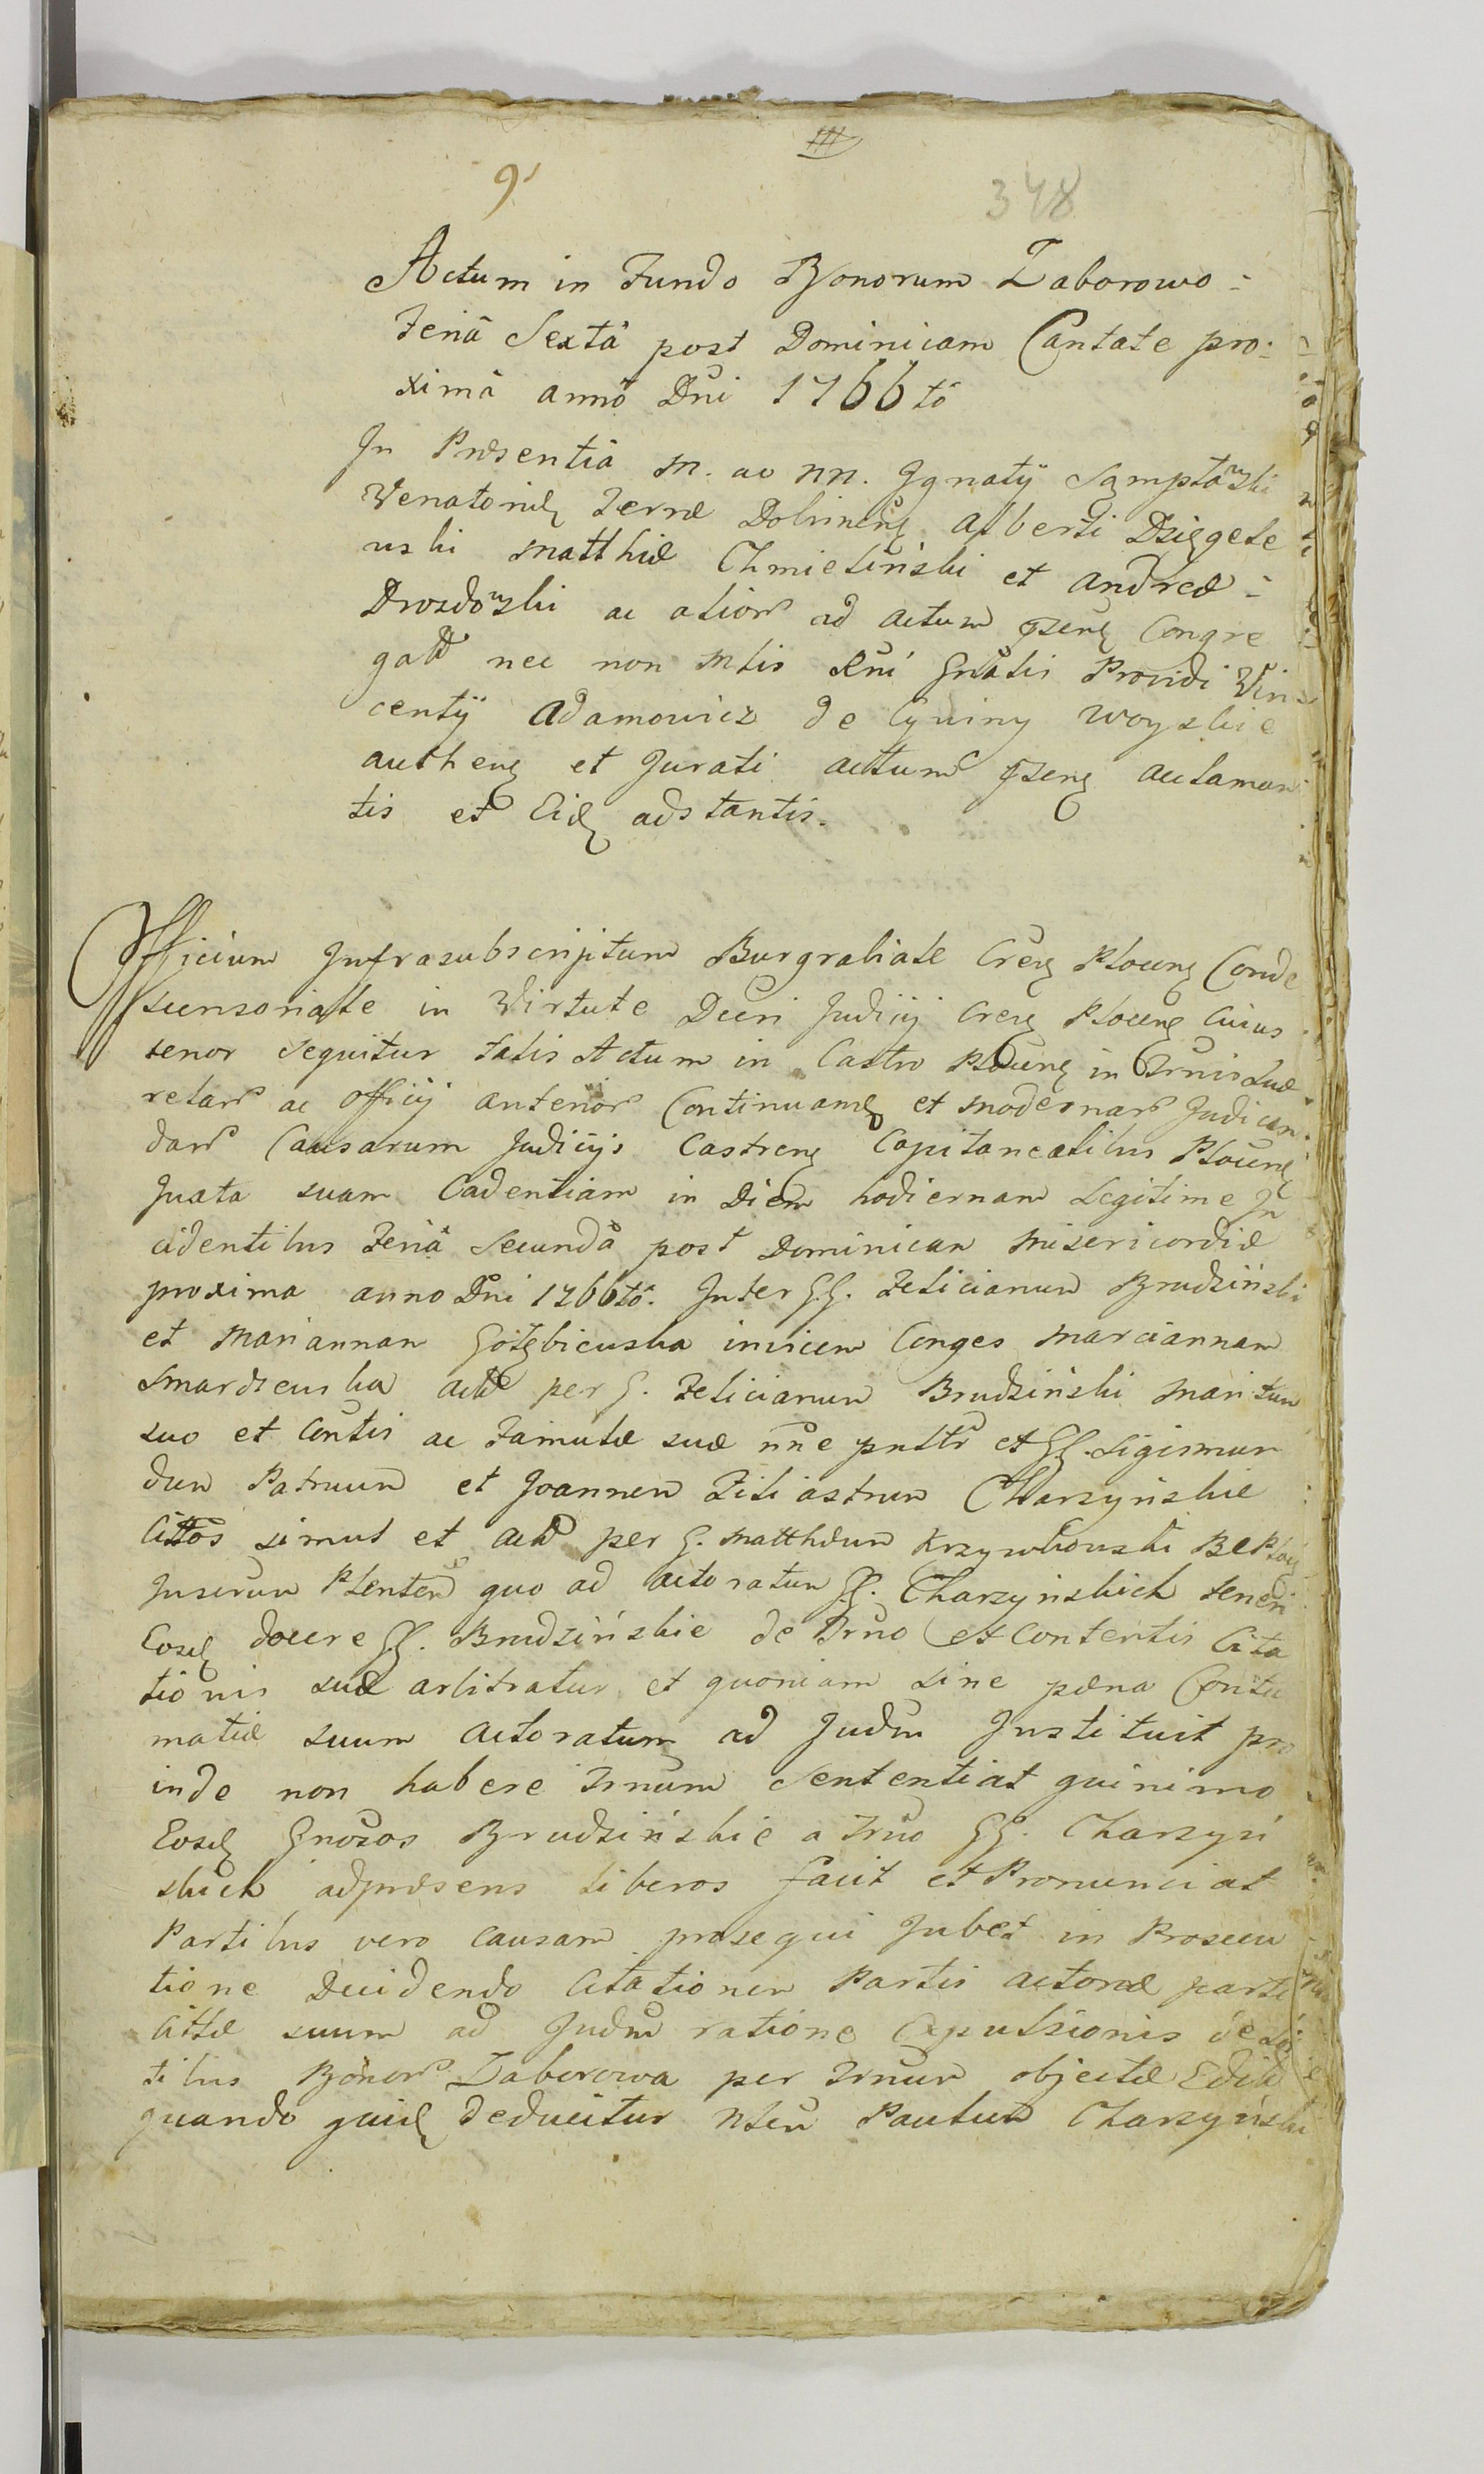 9
348
Actum in Fundo Bonorum Zaborowo =
Feriâ Sextâ post Dominicam Cantate pro=
ximâ annô Dni 1766tô
In Præsentiâ M. ac NN. Ignatÿ
Venatoridę Terræ Dobrinenę Alberti Dzięgele
wski Matthiæ Chmieliński et Andreæ =
Drozdowski ac alior ad actum pzenę Congre
gatt nec non Mtis Rni Gnalis Providi Vin
centÿ Adamowicz de woyskie
authenę et Jurati actum pzenę aclaman
tis et Eidę adstantis.
Officium Infrascubscriptum Burgrabiale Crenę Płocenę Conde
scensoriale in Virtute Decri Judicij Crenę Płocenę Cuius
tenor Sequitur talis Actum in Castro Płocenę in Trnis Que
relar ac Officij anterior Continuamę et modernar Judican
dar Causarum Judicÿs Castrenę Capitanealibus Płocenę
Juxta suam Cadentiam in Diem hodiernam Legitime In
cidentibus Feriâ Secundâ post Dominicam Misericordiæ
proxima anno Dni 1766tô. Inter GG. Felicianum Brudziński
et Mariannam Gołębiewska invicem Conges Marciannam
Smardzewska actt per G. Felicianum Brudziński maritum
suo et Contis ac Famulæ suæ nne pnltr et GG. Sigismun
dum Patruum et Joannem Filiastrum Charzyńskie
Cittos simul et actt per G. Matthæum Krzywkowski
Inserum Plenten quo ad actoratum GG. Charzyńskich teneri
Eosdę docere GG. Brudzińskie de Trno et Contentis Cita
tionis suæ arbitratur et quoniam sine pæna Contu
matiæ suum actoratum ad Judm Instituit pro
inde non habere Trnum Sententiat quinimo
Eosdę Gnosos Brudzińskie a Trno GG. Charzyń
skich adpræsens liberos facit et Pronunciat
Partibus vero causam prosequi Jubet in Prosecu
tione Decidendo Citationem Partis actoreæ parti
Cittæ suum ad Judm ratione Expulsionis de
tibus Bonor Zaborowa per Trnum objectæ
quando quidę deducitur Nlem Paulum Charzyński